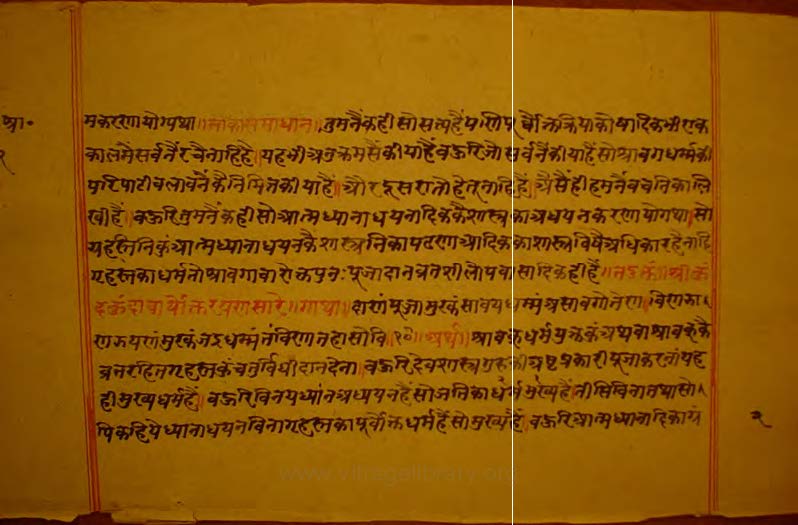 श्रा॰
२
मकरणायोग्यथा॥ताकासमाधान॥तुमनैंकहीसोसत्यहैंपरि
कालमैंसर्वनैंरचैनाहिहै॥यहभीअनुक्रमसैंकीयाहैं॥बऊरिजोसर्वनैंकीयाहैंसोश्रावगधर्म्मकी
परिपाटीचलावनैंकैनिमित्तकीयाहैं॥औरदूसरातोहेतूनाहिहैं॥ऐसैंहीहमनैंवचनिकालि
खीहैं॥बऊरितुमनैंकहीसोआत्मध्यानाधयनादिककैशास्त्रकाअधयनकरणायोगथा॥सो
यहस्तनिकुंआत्मध्यानाधयनकैशास्त्रनिकापढणआदिककाशास्त्रविषैअधिकारहैनाहि
गृहस्तकाधर्मतोश्रावगाचारोक्तपुनःपूजादानव्रतशीलौपवासादिकहीहैं॥तदुक्तं॥श्रीकुं
दकुंदाचार्योक्तरयणसारे॥गाथा॥दाणंपूजामुरकंसावयधम्मंअसावगोतेण॥विणझा
णझयणंमुरकंजइधम्मंतंविणतहासोवि॥१०॥अर्थ॥श्रावकधर्मयुक्तकुंअथवाश्रावककै
व्रतरहितगृहस्तकुंचतुर्विधीदानदेना॥बऊरिदेवशास्त्रगुरुकीअष्टप्रकारीपूजाकरनांयह
हीमुख्यधर्महैं॥बऊरिविनयध्यांनअध्ययनहैंसोजतिकाधर्ममुख्यहैं॥तीसिविनातथासो
पिकहियेध्यानाधयनविनागृहस्तकापूर्वोक्तधर्महैंसोमुख्यहैं॥बऊरिआत्मध्यानादिकायं
२
www.vitragalibrary.org